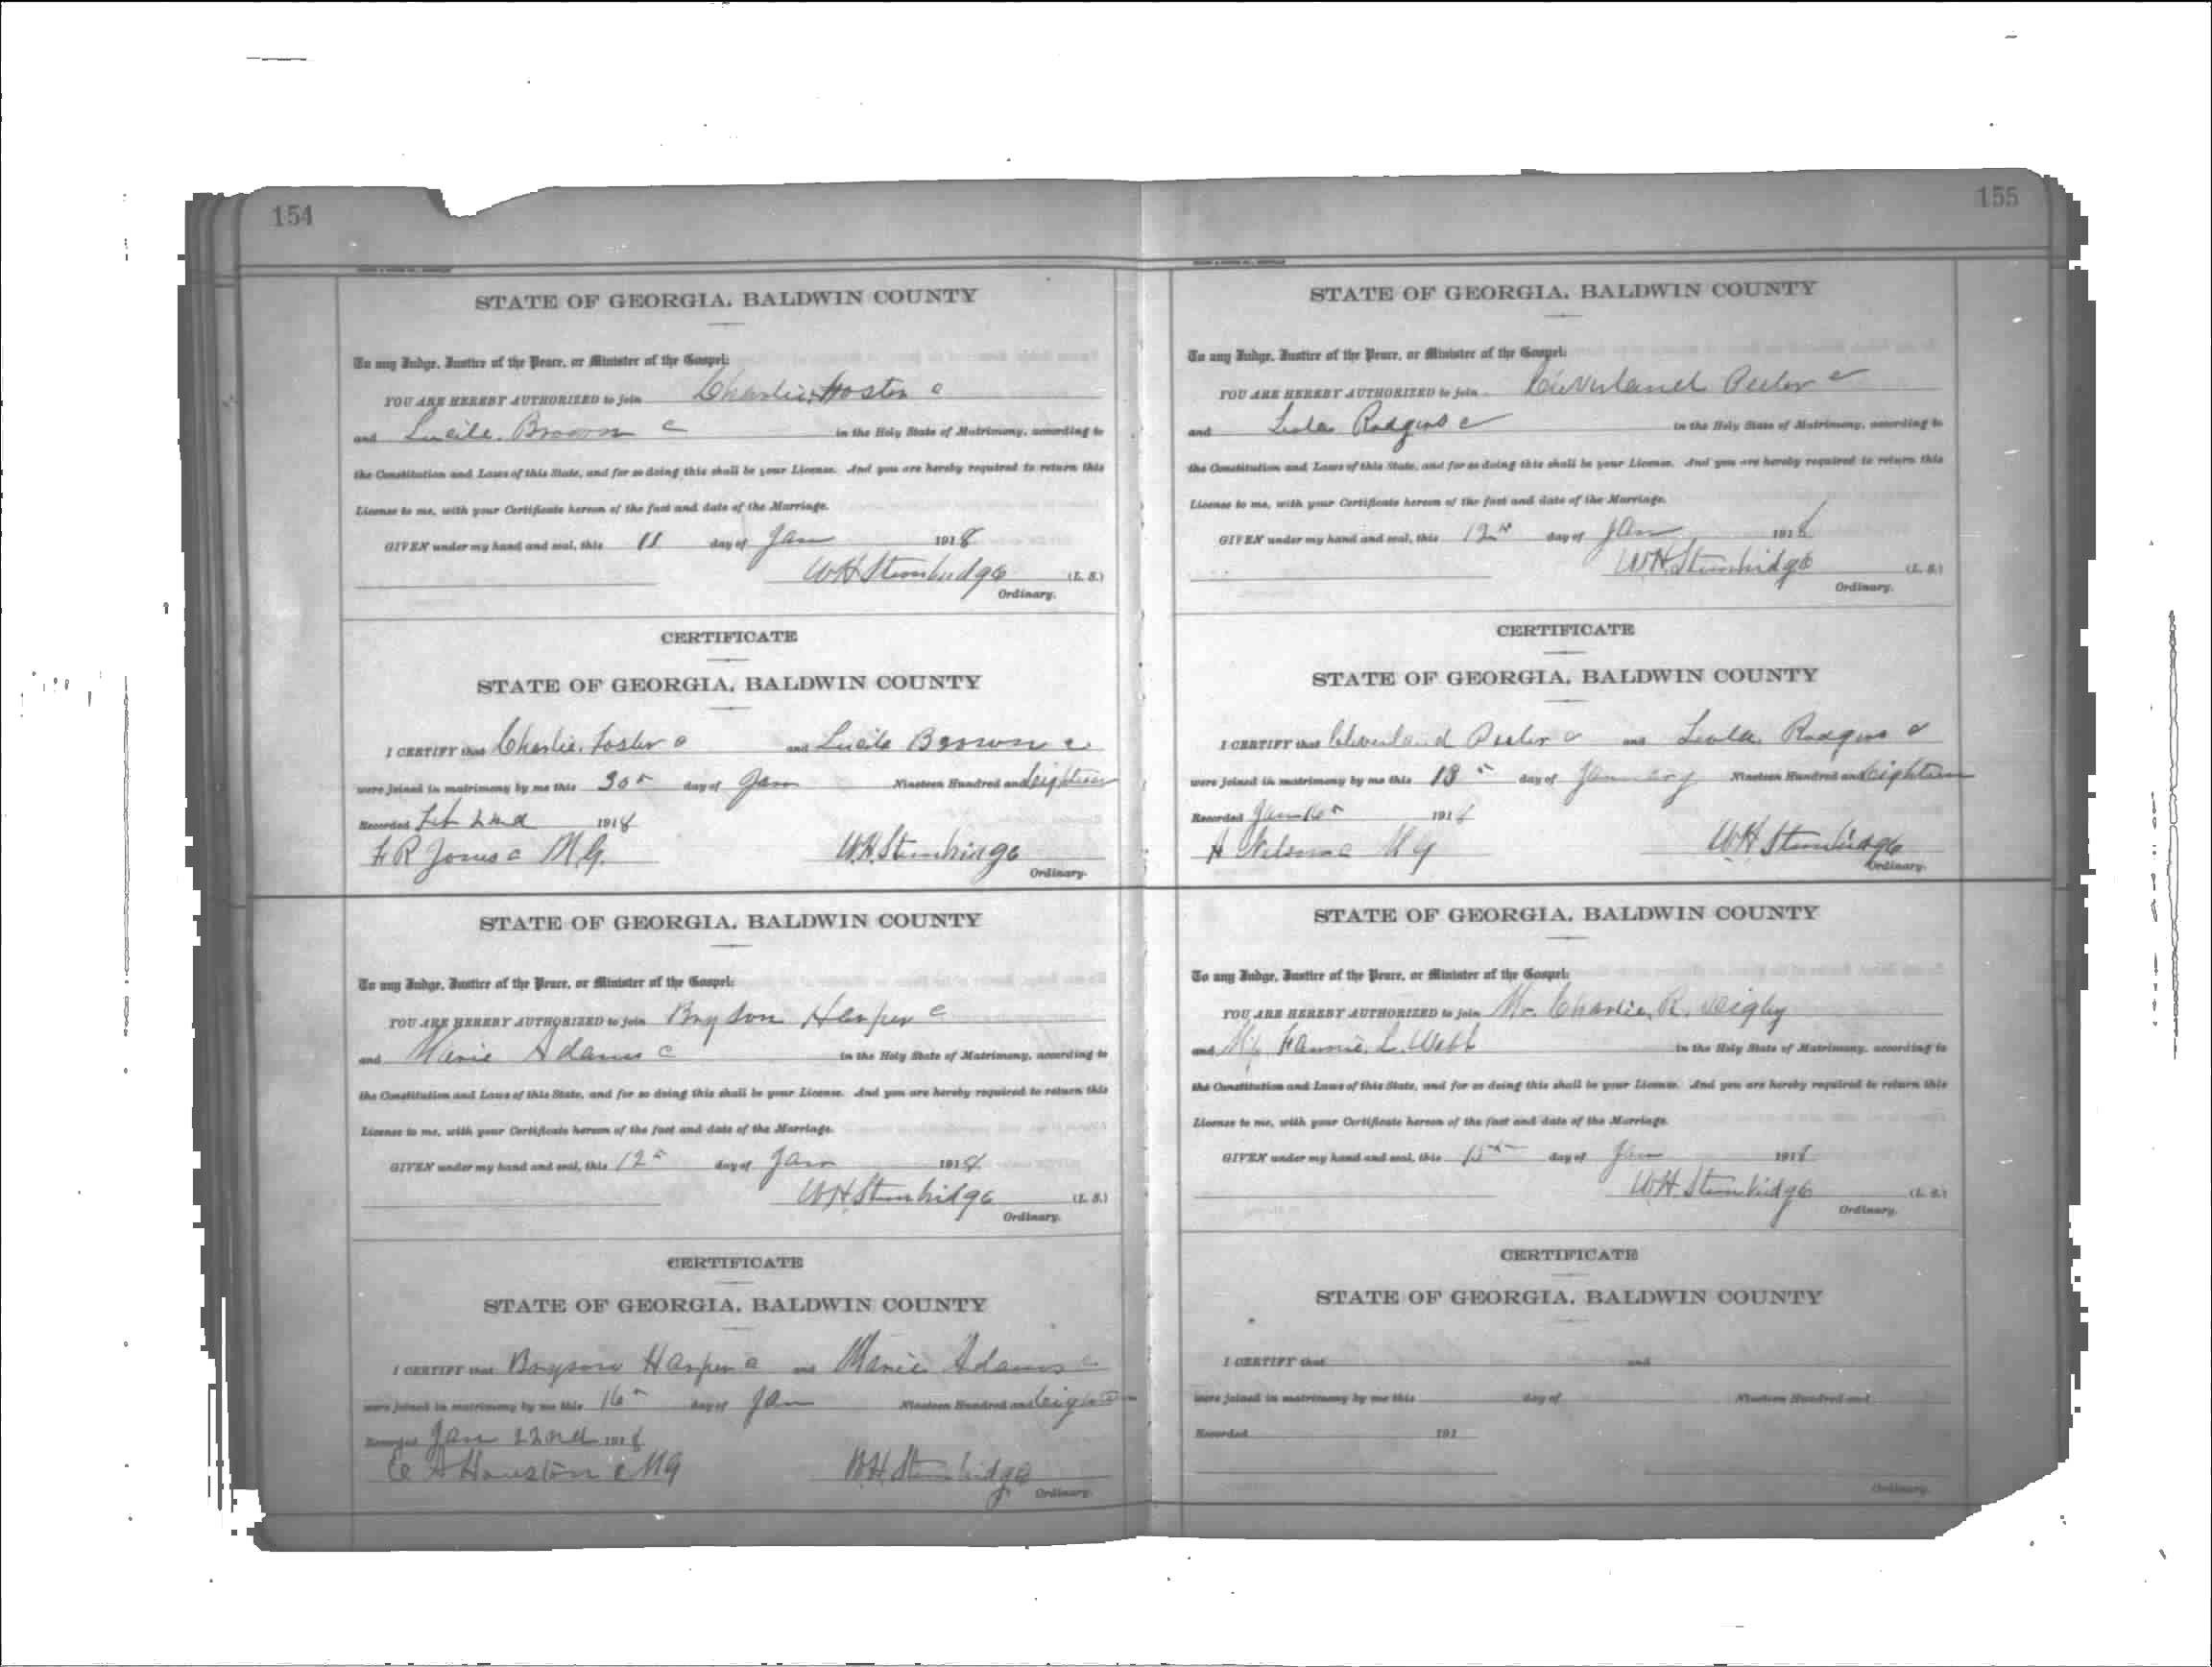 154
STATE OF GEORGIA, BALDWIN COUNTY
To any Judge, Justice of the Peace, or Minister of the Gospel:
YOU ARE HEREBY AUTHORIZED to join Charlie Hoston c
and Lucile Brown c in the Holy State of Matrimony, according to
the Constitution and Laws of this State, and for so doing this shall be your License. And you are hereby required to return this
License to me, with your Certificate hereon of the fact and date of the Marriage.
GIVEN under my hand and seal, this 11 day of Jan 1918
WH Stembridge (L. S.)
Ordinary.
CERTIFICATE
STATE OF GEORGIA, BALDWIN COUNTY
I CERTIFY that Charlie Foster c and Lucile Brown c
were joined in matrimony by me this 30th day of Jan Nineteen Hundred and Eighteen
Recorded Feb 2nd 1918
F R Jones c M.G. W.H. Stembridge
Ordinary.
STATE OF GEORGIA, BALDWIN COUNTY
To any Judge, Justice of the Peace, or Minister of the Gospel:
YOU ARE HEREBY AUTHORIZED to join Bryson Harper c
and Marie Adams c in the Holy State of Matrimony, according to
the Constitution and Laws of this State, and for so doing this shall be your License. And you are hereby required to return this
License to me, with your Certificate hereon of the fact and date of the Marriage.
GIVEN under my hand and seal, this 12th day of Jan 1918
WH Stembridge (L. S.)
Ordinary.
CERTIFICATE
STATE OF GEORGIA, BALDWIN COUNTY
I CERTIFY that Bryson Harper c and Marie Adams c
were joined in matrimony by me this 16th day of Jan Nineteen Hundred and Eighteen
Recorded Jan 22nd 1918
E A Houston c MG W.H. Stembridge
Ordinary.
155
STATE OF GEORGIA, BALDWIN COUNTY
To any Judge, Justice of the Peace, or Minister of the Gospel:
YOU ARE HEREBY AUTHORIZED to join Cleveland Peeler c
and Leola Rodgers c in the Holy State of Matrimony, according to
the Constitution and Laws of this State, and for so doing this shall be your License. And you are hereby required to return this
License to me, with your Certificate hereon of the fact and date of the Marriage.
GIVEN under my hand and seal, this 12th day of Jan 1918
WH Stembridge (L. S.)
Ordinary.
CERTIFICATE
STATE OF GEORGIA, BALDWIN COUNTY
I CERTIFY that Cleveland Peeler c and Leola Rodgers c
were joined in matrimony by me this 13th day of January Nineteen Hundred and Eighteen
Recorded Jan 16th 1918
H Nelson c MG WH Stembridge
Ordinary.
STATE OF GEORGIA, BALDWIN COUNTY
To any Judge, Justice of the Peace, or Minister of the Gospel:
YOU ARE HEREBY AUTHORIZED to join Mr. Charlie R. Veigley
and Fannie L. Webb in the Holy State of Matrimony, according to
the Constitution and Laws of this State, and for so doing this shall be your License. And you are hereby required to return this
License to me, with your Certificate hereon of the fact and date of the Marriage.
GIVEN under my hand and seal, this 15th day of Jan 1918
W.H. Stembridge (L. S.)
Ordinary.
CERTIFICATE
STATE OF GEORGIA, BALDWIN COUNTY
I CERTIFY that and
were joined in matrimony by me this day of Nineteen Hundred and
Recorded 191
Ordinary.